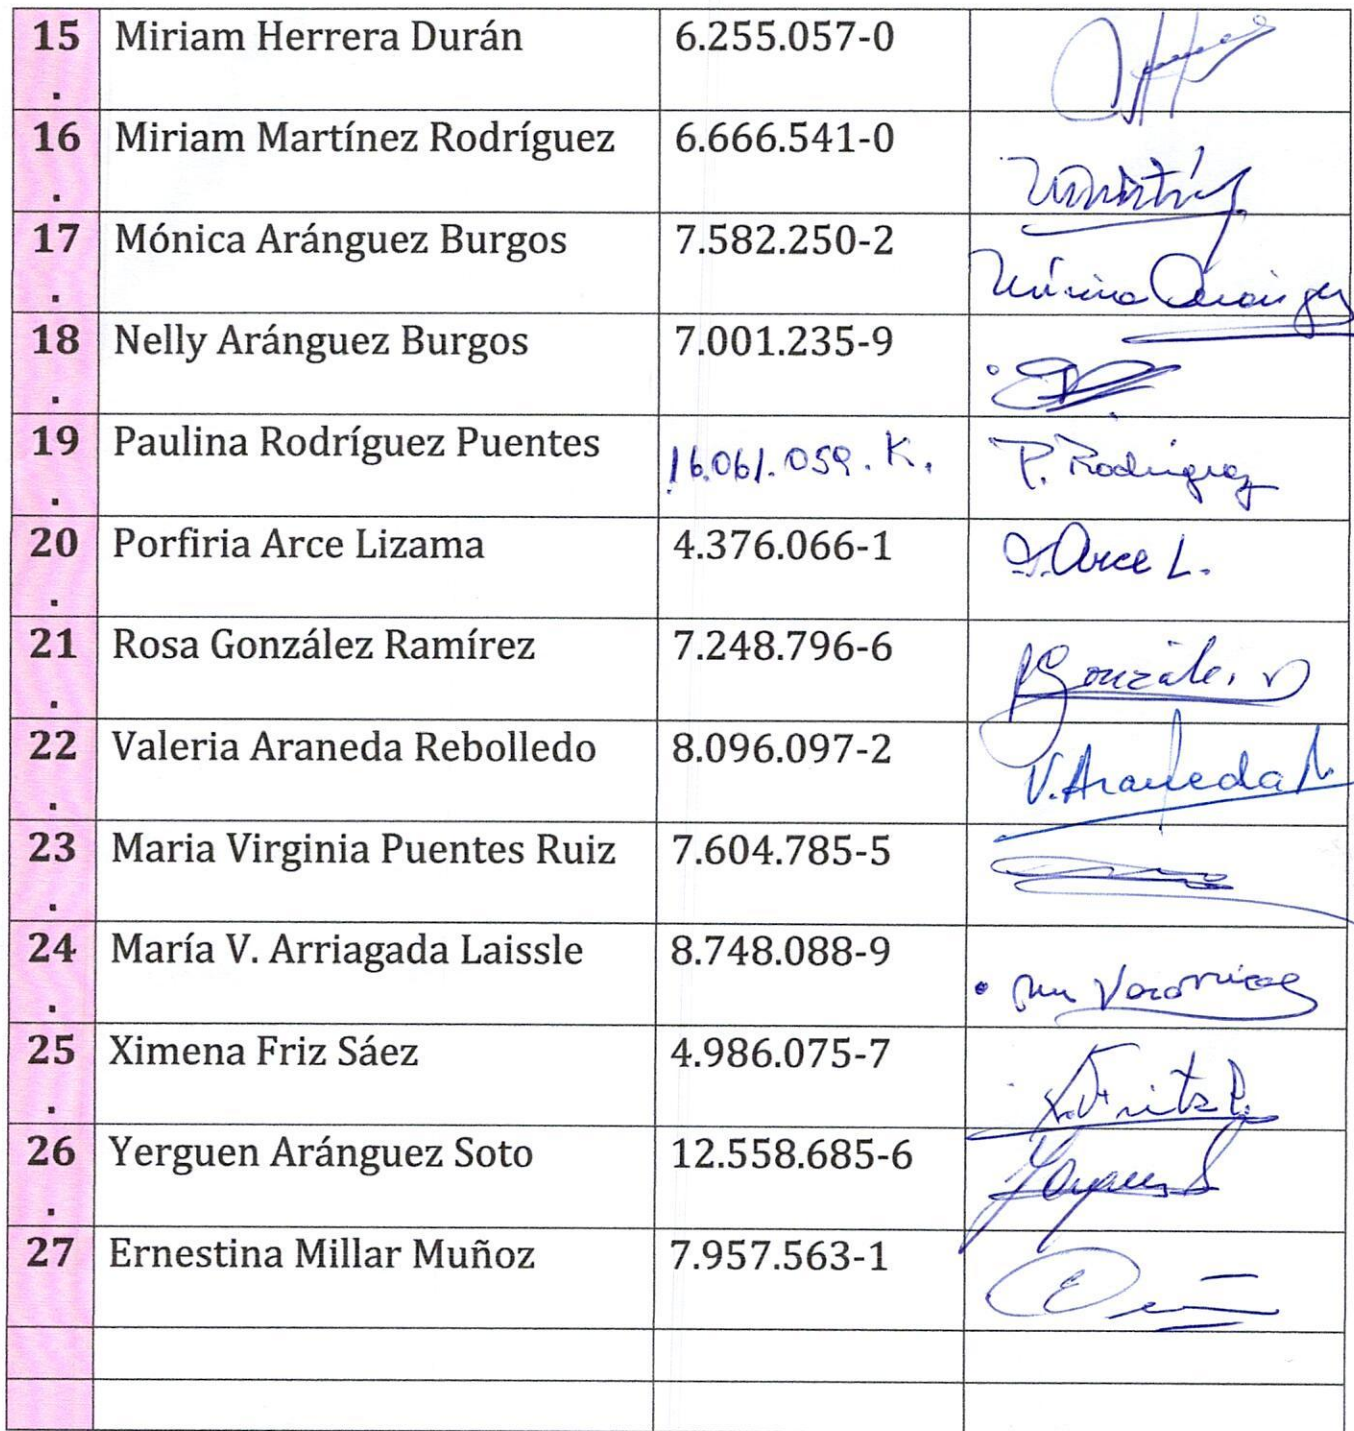 15 Miriam Herrera Durán 6.255.057-0
.
16 Miriam Martínez Rodríguez 6.666.541-0
.
17 Mónica Aránguez Burgos 7.582.250-2
.
18 Nelly Aránguez Burgos 7.001.235-9
.
19 Paulina Rodríguez Puentes 16.061.059.K. P. Rodriguez
.
20 Porfiria Arce Lizama 4.376.066-1 Arce L.
.
21 Rosa González Ramírez 7.248.796-6
.
22 Valeria Araneda Rebolledo 8.096.097-2 V. Araneda
.
23 Maria Virginia Puentes Ruiz 7.604.785-5
.
24 María V. Arriagada Laissle 8.748.088-9
.
25 Ximena Friz Sáez 4.986.075-7
.
26 Yerguen Aránguez Soto 12.558.685-6
.
27 Ernestina Millar Muñoz 7.957.563-1